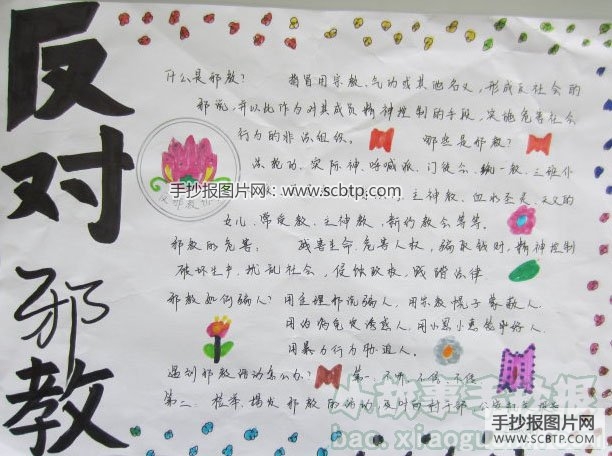 反对邪教
什么是邪教? 指冒用宗教、气功或其他名义,形成反社会的
邪说,并以此作为对其成员精神控制的手段,实施危害社会
行为的非法组织。 哪些是邪教?
法轮功、实际神、呼喊派、门徒会、统一教、三班仆
手抄报图片网:www.scbtp.com
主神教、血水圣灵、天父的
女儿、常受教、主神教、新约教会等等。
邪教的危害: 残害生命,危害人权,骗取钱财,精神控制
破坏生产,扰乱社会,侵蚀政权,践踏法律
邪教如何骗人? 用歪理邪说骗人,用宗教幌子蒙蔽人
用治病免灾诱惑人,用小恩小惠拉拢人
用暴力行为胁迫人。
遇到邪教活动怎么办? 第一、不听、不信、不传
第二、检举、揭发邪教的活动
手抄报图片网
WWW.SCBTP.COM